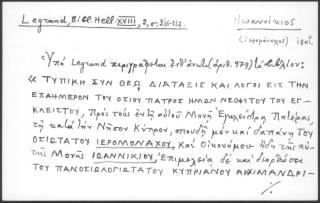 Legrand, Bibl. Hell. XVIII, 2, σ. 316-317.
Ἰωαννίκιος
(ἱερομόναχος)
Ὑπὸ Legrand περιγράφεται (ἀρ. 979) τὸ βιβλίον:
« ΤΥΠΙΚΗ ΣΥΝ ΘΕῼ ΔΙΑΤΑΞΙΣ ΚΑΙ ΛΟΓΟΙ ΕΙΣ ΤΗΝ
ΕΞΑΗΜΕΡΟΝ ΤΟΥ ΟΣΙΟΥ ΠΑΤΡΟΣ ΗΜΩΝ ΝΕΟΦΥΤΟΥ ΤΟΥ ΕΓ-
ΚΛΕΙΣΤΟΥ, Πρὸς τοὺς ἐν τῇ αὐτοῦ Μονῇ Ἐγκλείστρᾳ Πατέρας,
τῇ κατὰ τὴν Νῆσον Κύπρον, σπουδῇ μὲν καὶ δαπάνῃ ΤΟΥ
ΟΣΙΩΤΑΤΟΥ ΙΕΡΟΜΟΝΑΧΟΥ, καὶ Οἰκονόμου ἤδη τῆς αὐ-
τῆς Μονῆς ΙΩΑΝΝΙΚΙΟΥ, Ἐπιμελείᾳ δὲ καὶ διορθώσει
ΤΟΥ ΠΑΝΟΣΙΟΛΟΓΙΩΤΑΤΟΥ ΚΥΠΡΙΑΝΟΥ ΑΡΧΙΜΑΝΔΡΙ-